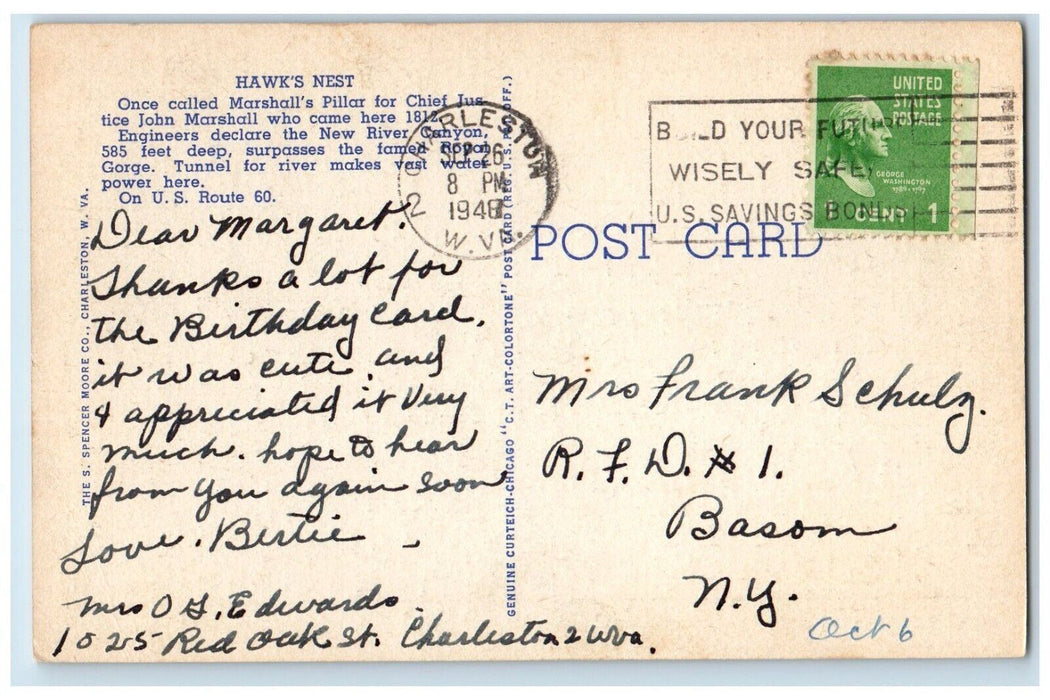 HAWK'S NEST
Once called Marshall's Pillar for Chief Jus-
tice John Marshall who came here 1812.
Engineers declare the New River Canyon,
585 feet deep, surpasses the famed Royal
Gorge. Tunnel for river makes vast water
power here.
On U. S. Route 60.
THE S. SPENCER MOORE CO., CHARLESTON, W. VA.
Dear Margaret.
Thanks a lot for
the Birthday Card.
it was cute. and
I appreciated it Very
much. hope to hear
from you again soon
Love. Bertie
Mrs O G. Edwards.
1025 Red Oak St. Charleston 2 Wva.
GENUINE CURTEICH-CHICAGO "C.T. ART-COLORTONE" POST CARD (REG. U.S. PAT. OFF.)
CHARLESTON 2
SEP 26
8 PM
W. VA.
BUILD YOUR FUTURE
WISELY SAFELY
U.S. SAVINGS BONDS
UNITED
STATES
POSTAGE
GEORGE
WASHINGTON
1789-1797
CENT 1
POST CARD
Mrs Frank Schulz.
R. F. D. # 1.
Basom
N.Y.
Oct 6